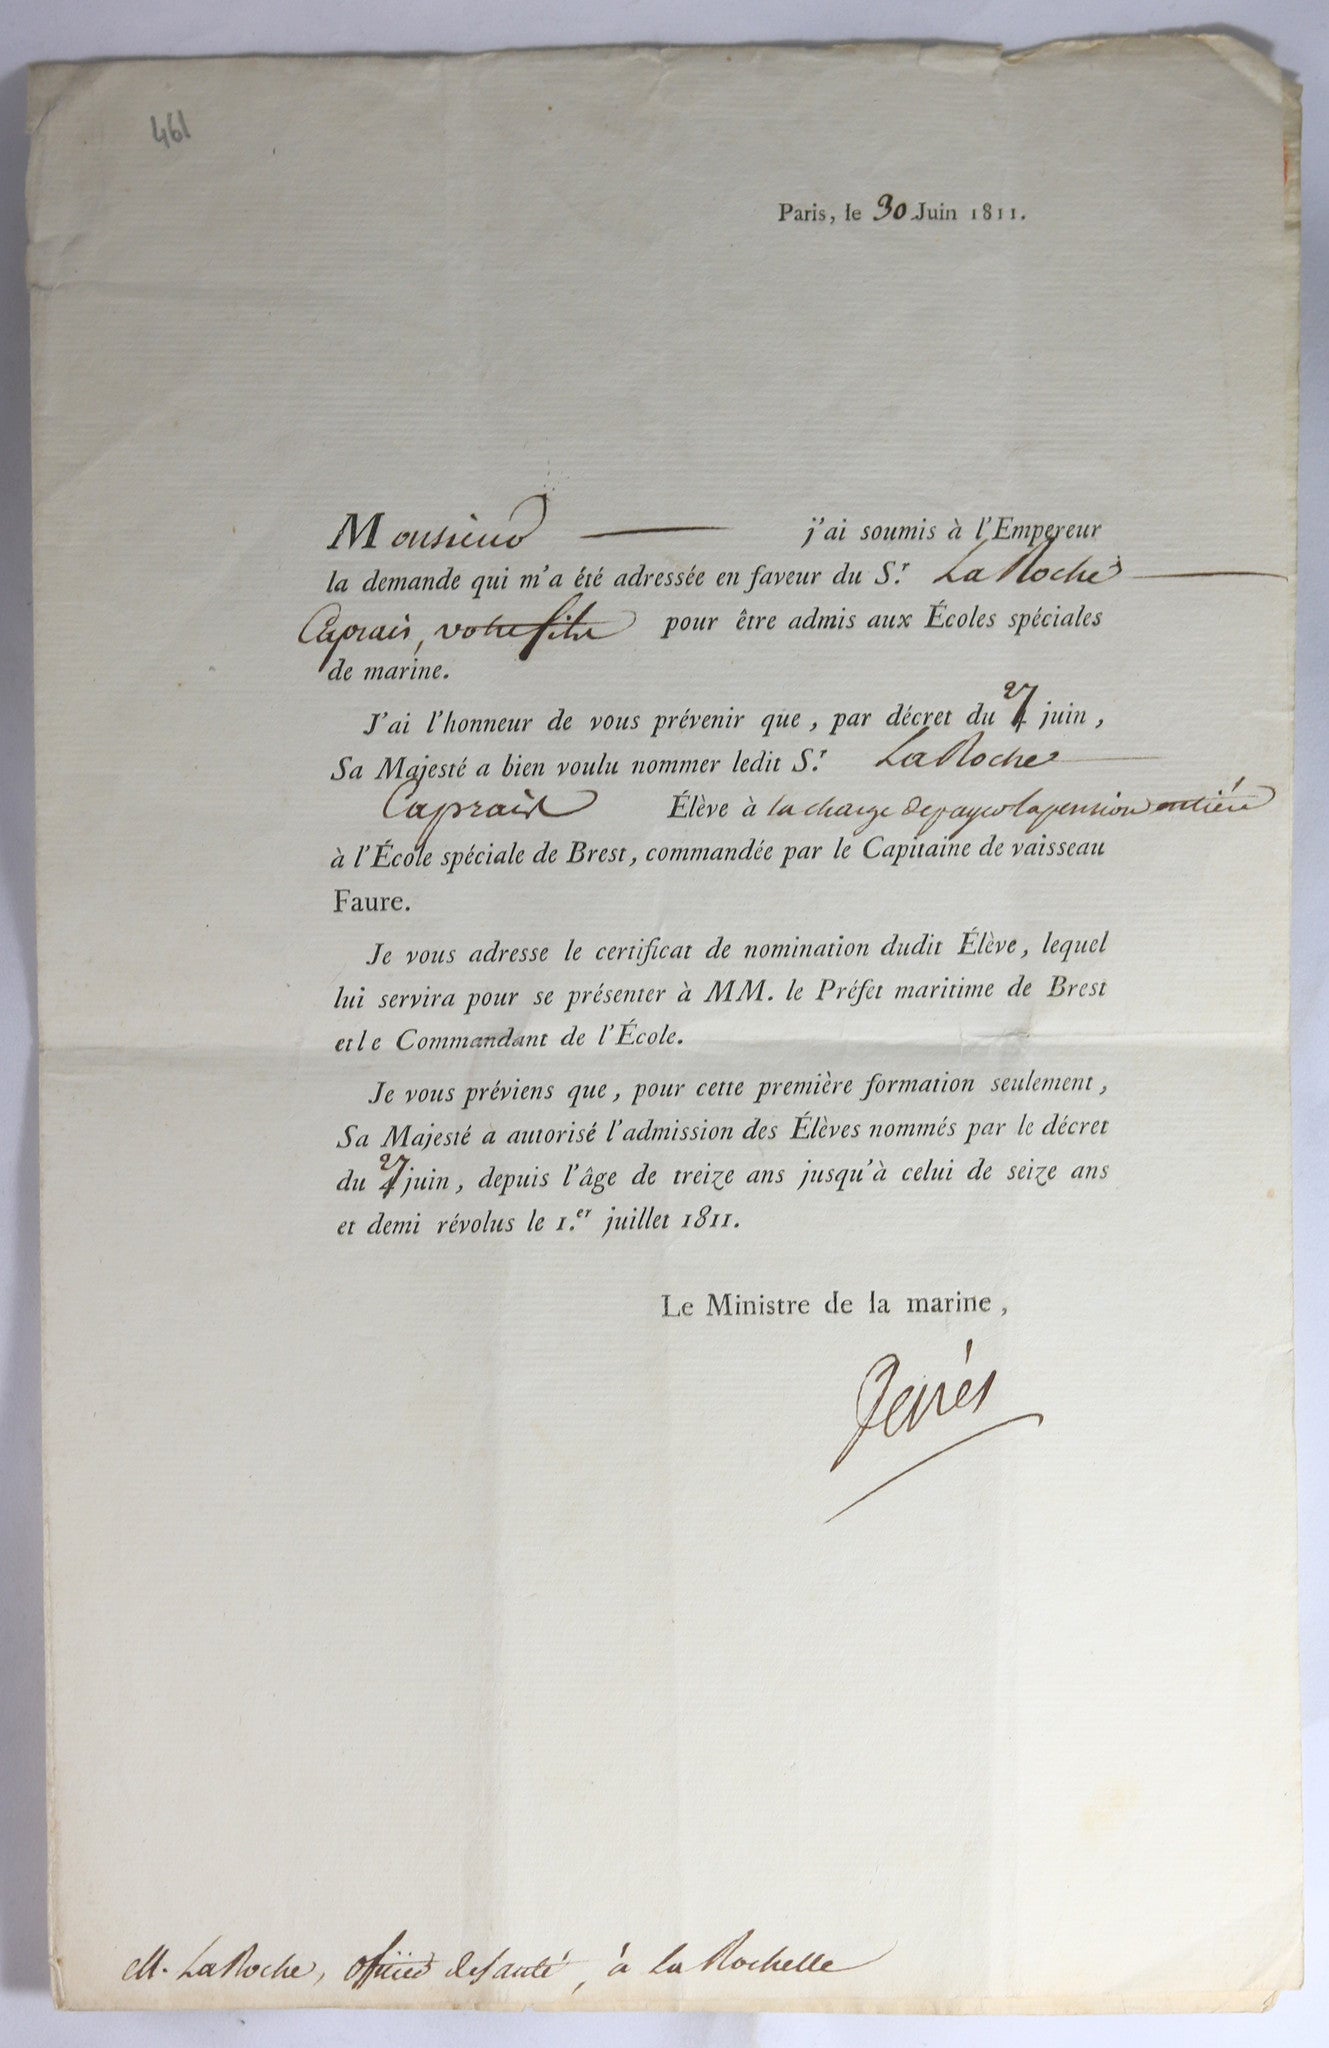 461
Paris, le 30 Juin 1811.
Monsieur j'ai soumis à l'Empereur
la demande qui m'a été adressée en faveur du S.r La Roche
Caprais, votre fils pour être admis aux Écoles spéciales
de marine.
J'ai l'honneur de vous prévenir que, par décret du 27 juin,
Sa Majesté a bien voulu nommer ledit S.r La Roche
Caprais Élève à la charge de payer la pension entière
à l'École spéciale de Brest, commandée par le Capitaine de vaisseau
Faure.
Je vous adresse le certificat de nomination dudit Élève, lequel
lui servira pour se présenter à MM. le Préfet maritime de Brest
et le Commandant de l'École.
Je vous préviens que, pour cette première formation seulement,
Sa Majesté a autorisé l'admission des Élèves nommés par le décret
du 27 juin, depuis l'âge de treize ans jusqu'à celui de seize ans
et demi révolus le 1.er juillet 1811.
Le Ministre de la marine,
Decrès
M. La Roche, officier de santé, à la Rochelle